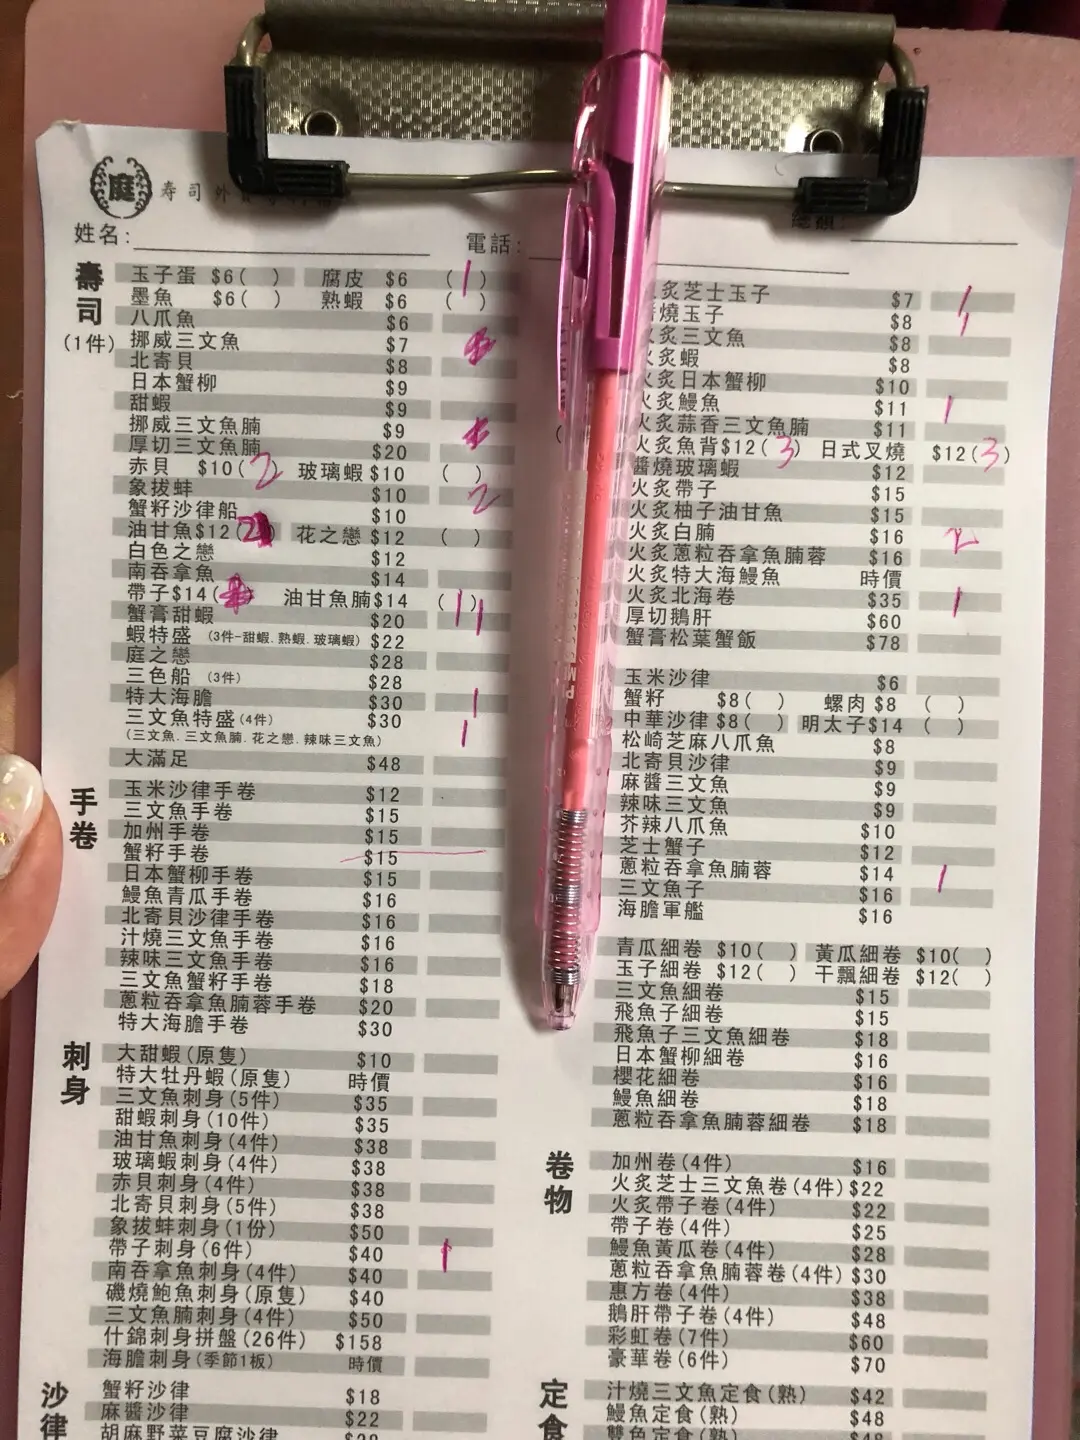 庭 寿司外
姓名:
電話:
總額:
壽司
(1件)
玉子蛋 $6( ) 腐皮 $6 (1)
墨魚 $6( ) 熟蝦 $6 ( )
八爪魚 $6
挪威三文魚 $7
北寄貝 $8
日本蟹柳 $9
甜蝦 $9
挪威三文魚腩 $9
厚切三文魚腩 $20
赤貝 $10(2) 玻璃蝦 $10 ( )
象拔蚌 $10 2
蟹籽沙律船 $10
油甘魚$12( ) 花之戀 $12 ( )
白色之戀 $12
南吞拿魚 $14
帶子$14( ) 油甘魚腩$14 (1)
蟹膏甜蝦 $20 1
蝦特盛 (3件-甜蝦.熟蝦.玻璃蝦) $22
庭之戀 $28
三色船 (3件) $28
特大海膽 $30 1
三文魚特盛(4件) $30 1
(三文魚.三文魚腩.花之戀.辣味三文魚)
大滿足 $48
手卷
玉米沙律手卷 $12
三文魚手卷 $15
加州手卷 $15
蟹籽手卷 $15
日本蟹柳手卷 $15
鰻魚青瓜手卷 $16
北寄貝沙律手卷 $16
汁燒三文魚手卷 $16
辣味三文魚手卷 $16
三文魚蟹籽手卷 $18
蔥粒吞拿魚腩蓉手卷 $20
特大海膽手卷 $30
刺身
大甜蝦(原隻) $10
特大牡丹蝦(原隻) 時價
三文魚刺身(5件) $35
甜蝦刺身(10件) $35
油甘魚刺身(4件) $38
玻璃蝦刺身(4件) $38
赤貝刺身(4件) $38
北寄貝刺身(5件) $38
象拔蚌刺身(1份) $50
帶子刺身(6件) $40 1
南吞拿魚刺身(4件) $40
磯燒鮑魚刺身(原隻) $40
三文魚腩刺身(4件) $50
什錦刺身拼盤(26件) $158
海膽刺身(季節1板) 時價
沙律
蟹籽沙律 $18
麻醬沙律 $22
胡麻野菜豆腐沙律
炙芝士玉子 $7 1
燒玉子 $8 1
火炙三文魚 $8
火炙蝦 $8
火炙日本蟹柳 $10
火炙鰻魚 $11 1
火炙蒜香三文魚腩 $11
火炙魚背$12(3) 日式叉燒 $12(3)
醬燒玻璃蝦 $12
火炙帶子 $15
火炙柚子油甘魚 $15
火炙白腩 $16 2
火炙蔥粒吞拿魚腩蓉 $16
火炙特大海鰻魚 時價
火炙北海卷 $35 1
厚切鵝肝 $60
蟹膏松葉蟹飯 $78
玉米沙律 $6
蟹籽 $8( ) 螺肉 $8 ( )
中華沙律 $8( ) 明太子$14 ( )
松崎芝麻八爪魚 $8
北寄貝沙律 $9
麻醬三文魚 $9
辣味三文魚 $9
芥辣八爪魚 $10
芝士蟹子 $12
蔥粒吞拿魚腩蓉 $14 1
三文魚子 $16
海膽軍艦 $16
青瓜細卷 $10( ) 黃瓜細卷 $10( )
玉子細卷 $12( ) 干瓢細卷 $12( )
三文魚細卷 $15
飛魚子細卷 $15
飛魚子三文魚細卷 $18
日本蟹柳細卷 $16
櫻花細卷 $16
鰻魚細卷 $18
蔥粒吞拿魚腩蓉細卷 $18
卷物
加州卷(4件) $16
火炙芝士三文魚卷(4件) $22
火炙帶子卷(4件) $22
帶子卷(4件) $25
鰻魚黃瓜卷(4件) $28
蔥粒吞拿魚腩蓉卷(4件) $30
惠方卷(4件) $38
鵝肝帶子卷(4件) $48
彩虹卷(7件) $60
豪華卷(6件) $70
定食
汁燒三文魚定食(熟) $42
鰻魚定食(熟) $48
雙色定食(熟) $48